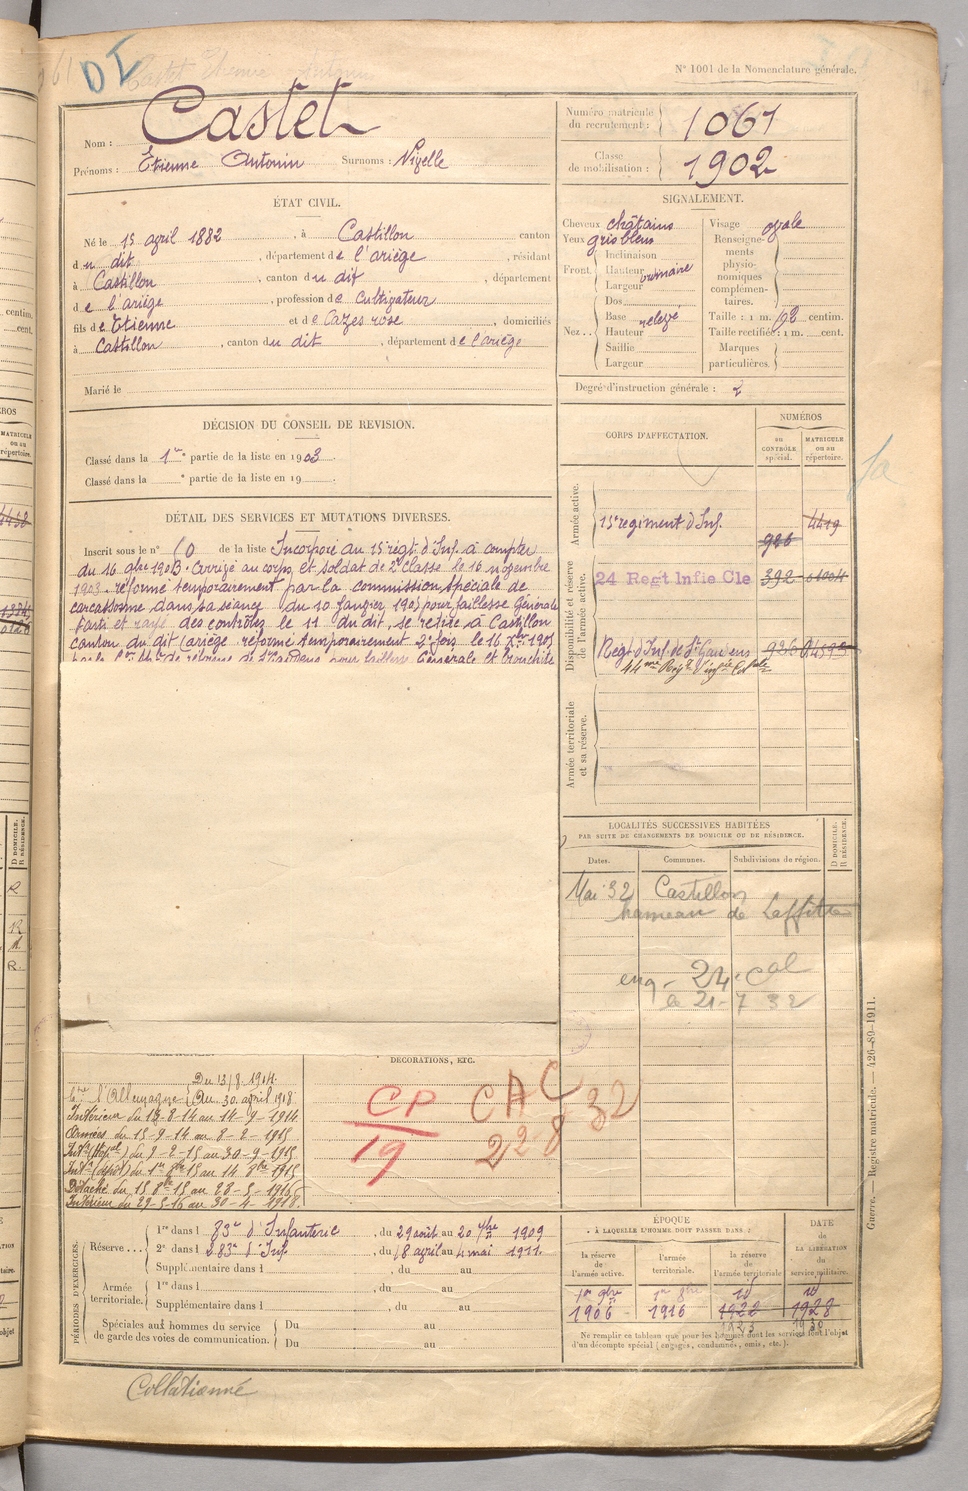 DI
Castet Etienne Antonin
N° 1001 de la Nomenclature générale.
Nom : Castet
Prénoms : Etienne Antonin Surnoms : Nizelle
Numéro matricule du recrutement : 1061
Classe de mobilisation : 1902
ÉTAT CIVIL.
Né le 15 april 1882, à Castillon canton
du dit, département de l'ariège, résidant
à Castillon, canton du dit, département
de l'ariége, profession de Cultigateur
fils de Etienne et de Cazes rose, domiciliés
à Castillon, canton du dit, département de l'ariége
Marié le
SIGNALEMENT.
Cheveux châtains
Yeux gris bleus
Front. Inclinaison
Hauteur ordinaire
Largeur
Nez... Dos
Base relevé
Hauteur
Saillie
Largeur
Visage ovale
Renseignements physionomiques complémentaires.
Taille : 1 m. 62 centim.
Taille rectifiée : 1 m. cent.
Marques particulières.
Degré d'instruction générale : 2
DÉCISION DU CONSEIL DE REVISION.
Classé dans la 1re partie de la liste en 1903
Classé dans la e partie de la liste en 19
DÉTAIL DES SERVICES ET MUTATIONS DIVERSES.
Inscrit sous le n° 10 de la liste Incorporé au 15e régt d'Inf. à compter
du 16 9bre 1903. Corrigé au corps et soldat de 2e classe le 16 novembre
1903. réformé temporairement par la commission spéciale de
carcassonne dans sa séance du 10 Janvier 1905 pour faillesse Générale
Parti et rayé des contrôles le 11 du dit, se retire à Castillon
canton du dit (ariége réformé temporairement 2e fois le 16 Xbre 1905
CORPS D'AFFECTATION.
NUMÉROS
au CONTRÔLE spécial.
MATRICULE ou au répertoire.
Armée active.
15e regiment d'Inf. 926 4419
Disponibilité et réserve de l'armée active.
24 Regt Infie Cle 392 01004
Regt d'Inf. de St Gaudens 926 04593
44me Régt d'Infie Colale
Armée territoriale et sa réserve.
LOCALITÉS SUCCESSIVES HABITÉES
PAR SUITE DE CHANGEMENTS DE DOMICILE OU DE RÉSIDENCE.
Dates. Communes. Subdivisions de région. D DOMICILE. R RÉSIDENCE.
Mai 32 Castillon
hameau de Laffitte
eng. 24. Cal
le 21-7 32
DÉCORATIONS, ETC.
Du 13/8-1914.
Ctre l'Allemagne Au 30 april 1918.
Intérieur du 13-8-14 au 14-9-1914
Armées du 15-9-14 au 8-2-1915
Intr (Hopal) du 9-2-15 au 30-9-1915
Intr (dépôt) du 1er 8bre 15 au 14 8bre 1915
Détaché du 15 8bre 15 au 28-5-1916
Intérieur du 29-5-16 au 30-4-1918.
CP
19
CAC 32
22 8
PÉRIODES D'EXERCICES.
Réserve... 1re dans l 83e d'Infanterie, du 29 août au 20 7bre 1909
2e dans l 283e d'Inf., du 18 april au 4 mai 1911.
Supplémentaire dans l, du au
Armée territoriale. 1re dans l, du au
Supplémentaire dans l, du au
Spéciales aux hommes du service de garde des voies de communication. Du au
Du au
ÉPOQUE
À LAQUELLE L'HOMME DOIT PASSER DANS :
la réserve de l'armée active.
l'armée territoriale.
la réserve de l'armée territoriale
DATE de LA LIBÉRATION du service militaire.
1er 9bre 1906
1er 8bre 1916
id 1922 1923
id 1928 1930
Ne remplir ce tableau que pour les hommes dont les services font l'objet
d'un décompte spécial (engagés, condamnés, omis, etc.).
Guerre. — Registre matricule. — 426-89-1911.
Collationné